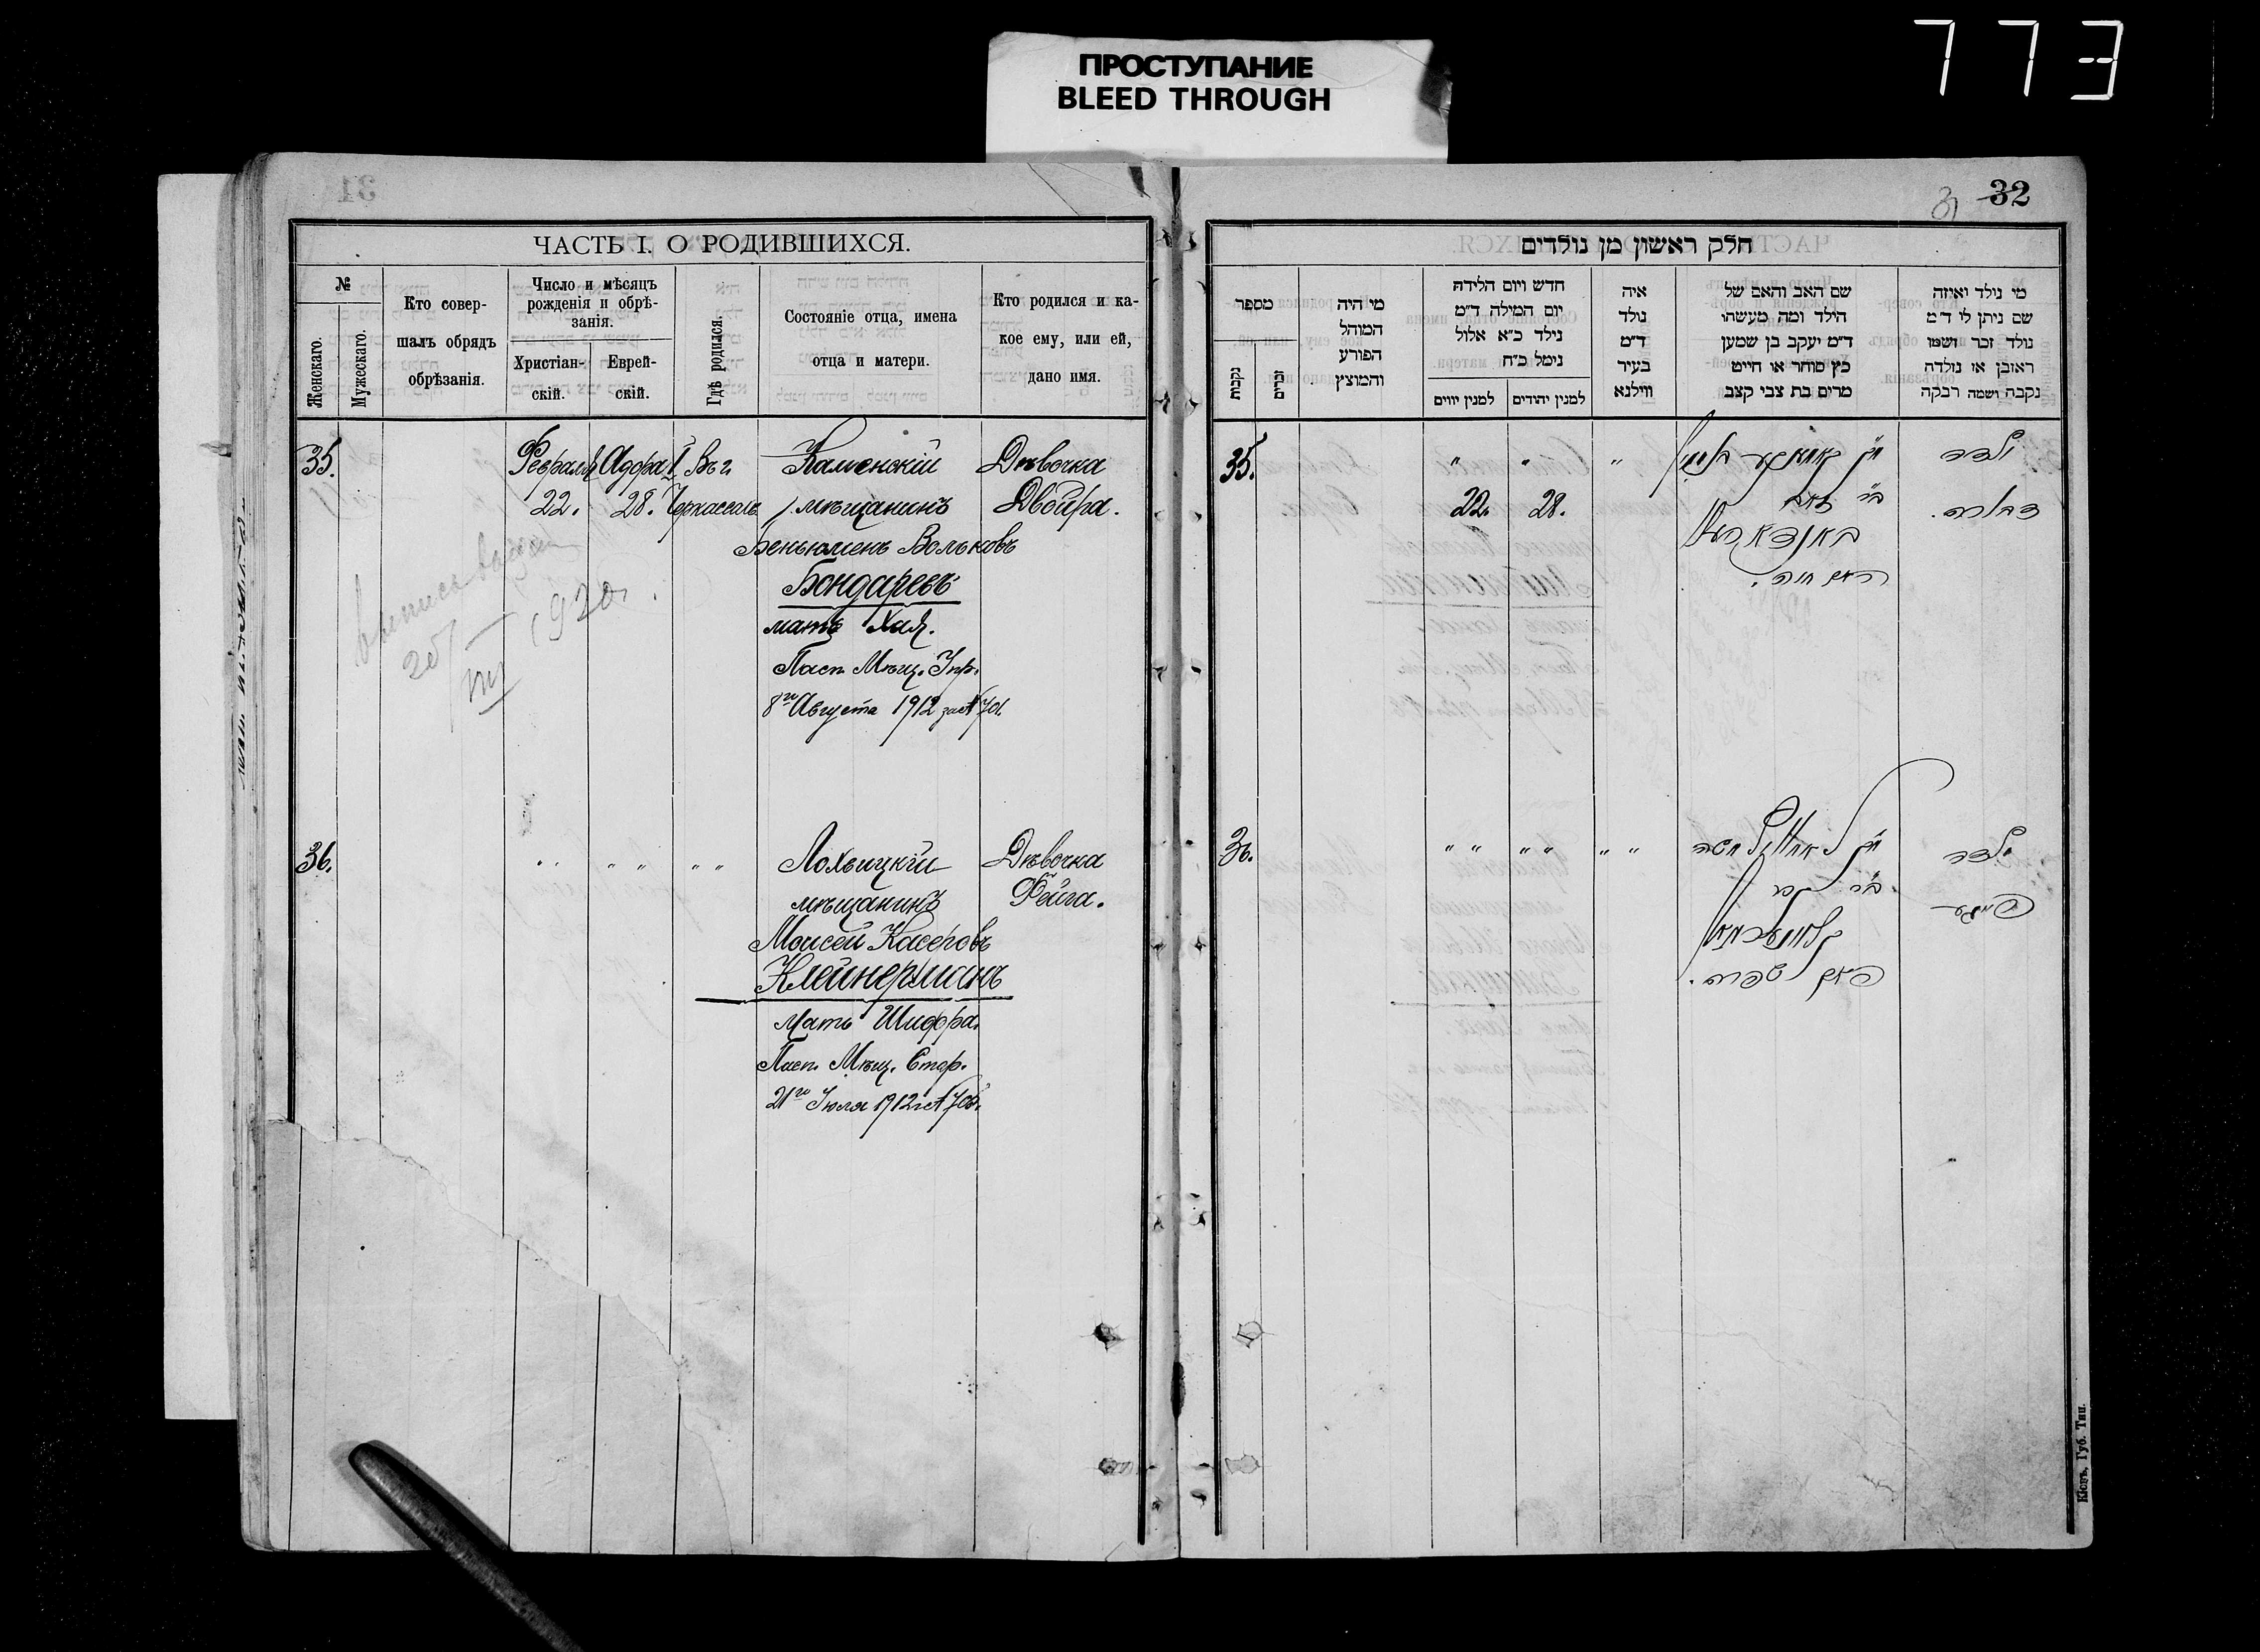 773
ПРОСТУПАНИЕ
BLEED THROUGH
31
32
31
ЧАСТЬ I. О РОДИВШИХСЯ.
№
Женскаго.
Мужескаго.
Кто совер-
шалъ обрядъ
обрѣзанія.
Число и мѣсяцъ
рожденія и обрѣ-
занія.
Христіан-
скій.
Еврей-
скій.
Гдѣ родился.
Состояніе отца, имена
отца и матери.
Кто родился и ка-
кое ему, или ей,
дано имя.
35.
Февраля Адора I Въ г. Каменскій Дѣвочка
22. 28. Черкассахъ мѣщанинъ Двойра.
Беньюменъ Вольковъ
Бондаревъ
мать Хая.
Пасп. Мѣщ. Упр.
8го Августа 1912 за №
выпись выдана
20/VIII 1920г.
36.
" " " " " " Лохвицкій Дѣвочка
мѣщанинъ Фейга.
Моисей Касеровъ
Клейнерманъ
Мать Шифра.
Пасп. Мѣщ. Стар.
21го Іюля 1912 г. №
חלק ראשון מן נולדים
מי נולד ואיזה
שם ניתן לו ד״מ
נולד זכר ושמו
ראובן או נולדה
נקבה ושמה רבקה
שם האב והאם של
הילד ומה מעשהו
ד״מ יעקב בן שמען
כץ סוחר או חייט
מרים בת צבי קצב
איה
נולד
ד״מ
בעיר
ווילנא
חדש ויום הלידה
יום המילה ד״מ
נילד כ״א אלול
נימל כ״ח
למנין יהודים
למנין יוונים
מי היה
המוהל
הפורע
והמוצץ
מספר
זכרים
נקבות
35. " " "
22. 28.
ילדה
דבורה.
באנדארעוו
האם חיה.
36. " " " " " "
ילדה
פייגע
קליינערמאן
האם שפרה.
Кіевъ, Губ. Тип.